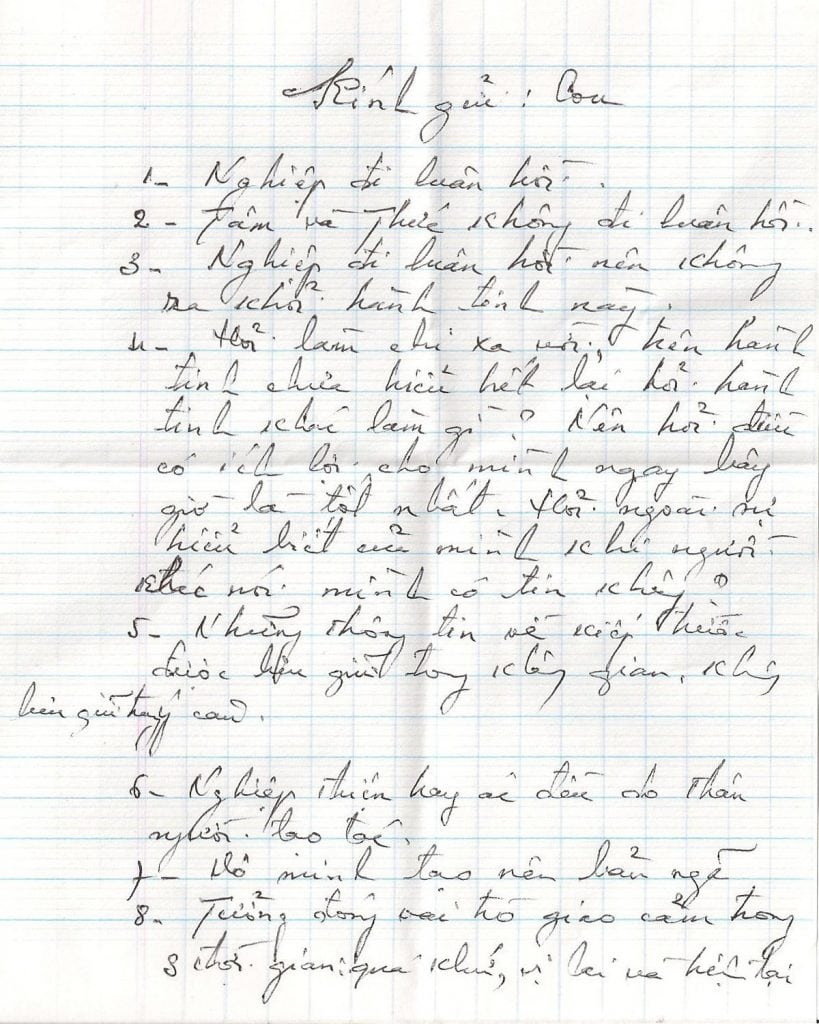 Kính gửi: Con
1- Nghiệp đi luân hồi.
2- Tâm và Thức không đi luân hồi.
3- Nghiệp đi luân hồi nên không
ra khỏi hành tinh này.
4- Hỏi làm chi xa vời, trên hành
tinh chưa hiểu hết lại hỏi hành
tinh khác làm gì? Nên hỏi điều
có ích lợi cho mình ngay bây
giờ là tốt nhất. Hỏi ngoài sự
hiểu biết của mình khi người
khác nói mình có tin không?
5- Những thông tin về kiếp trước
được lưu giữ trong không gian, không
lưu giữ trong
6- Nghiệp thiện hay ác đều do thân
người tạo tác.
7- Vô minh tạo nên bản ngã
8- Tưởng đóng vai trò giao cảm trong
3 thời gian: quá khứ, vị lai và hiện tại